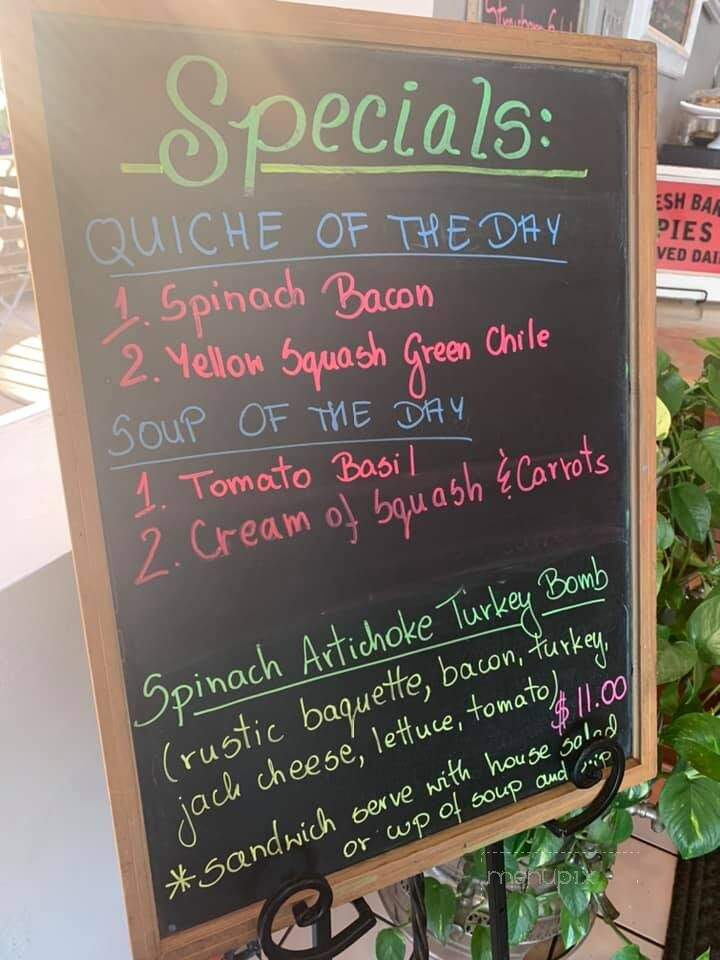 Strawberry
Specials:
QUICHE OF THE DAY
1. Spinach Bacon
2. Yellow Squash Green Chile
SOUP OF THE DAY
1. Tomato Basil
2. Cream of Squash & Carrots
Spinach Artichoke Turkey Bomb
(rustic baquette, bacon, turkey,
jack cheese, lettuce, tomato)
$11.00
*sandwich serve with house salad
or cup of soup and
ESH BA
PIES
VED DAI
menupix